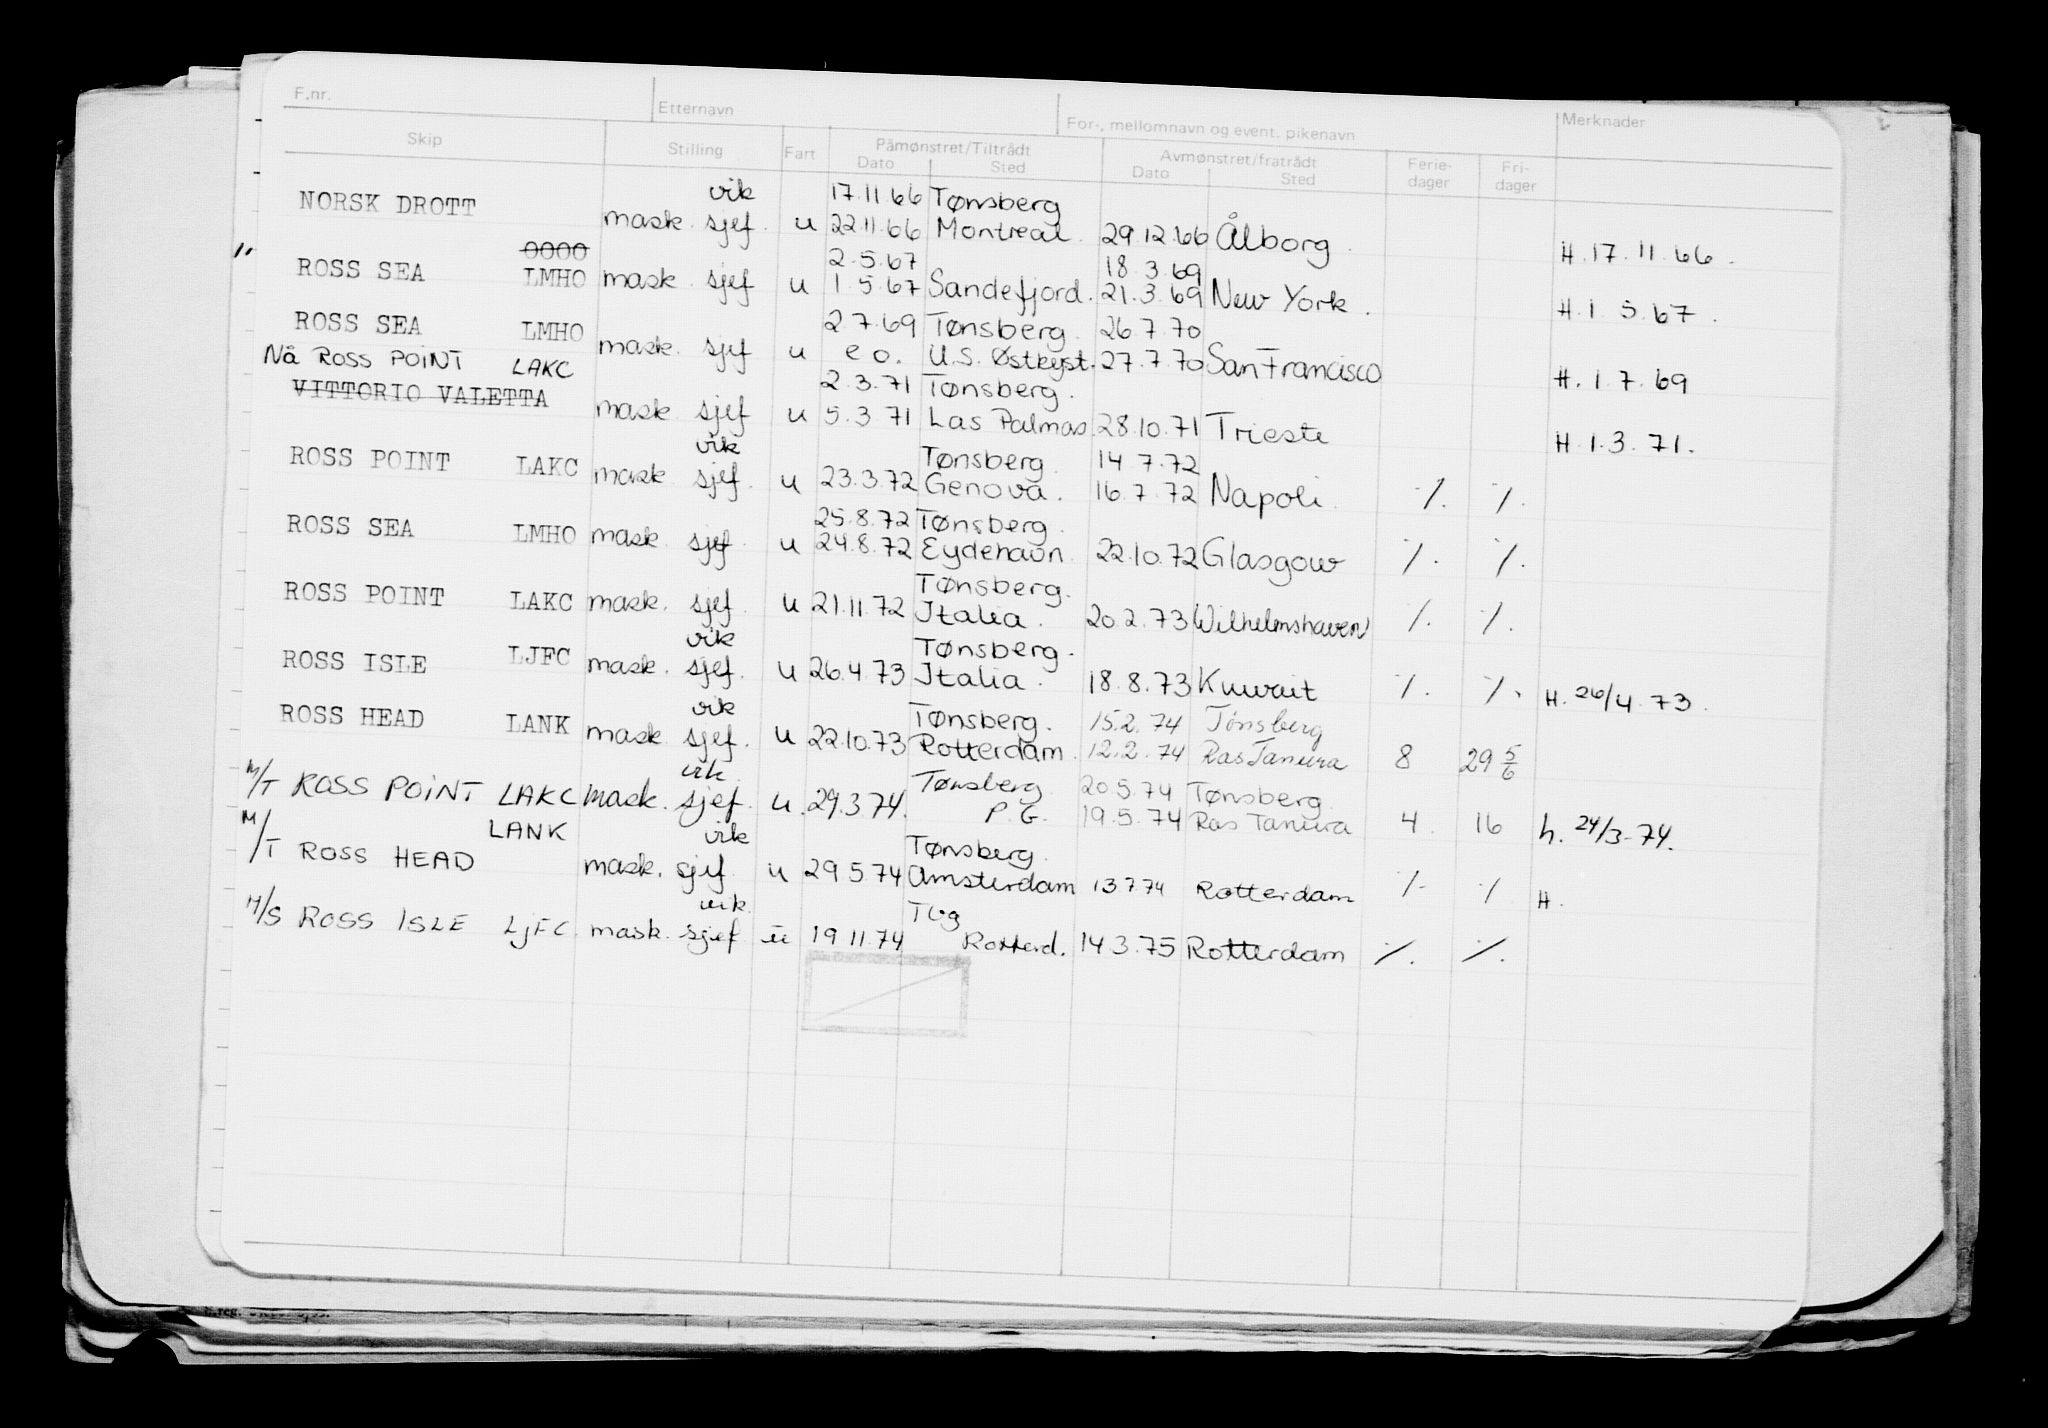 F.nr. Etternavn For-, mellomnavn og event. pikenavn Merknader
Skip Stilling Fart Påmønstret/Tiltrådt Avmønstret/fratrådt Ferie- Fri-
Dato Sted Dato Sted dager dager
vik 17.11.66 Tønsberg
NORSK DROTT mask. sjef. u 22.11.66 Montreal. 29.12.66 Ålborg. H. 17. 11. 66.
" 0000 2.5.67 18.3.69
ROSS SEA LMHO mask. sjef u 1.5.67 Sandefjord. 21.3.69 New York. H. 1. 5. 67.
ROSS SEA LMHO 2.7.69 Tønsberg. 26.7.70
mask. sjef u e o. U.S. Østkyst. 27.7.70 San Francisco H. 1. 7. 69
Nå ROSS POINT LAKC 2.3.71 Tønsberg.
VITTORIO VALETTA mask. sjef u 5.3.71 Las Palmas. 28.10.71 Trieste H. 1. 3. 71.
vik Tønsberg. 14.7.72
ROSS POINT LAKC mask. sjef. u 23.3.72 Genova. 16.7.72 Napoli. ·/. ·/.
25.8.72 Tønsberg.
ROSS SEA LMHO mask. sjef. u 24.8.72 Eydehavn. 22.10.72 Glasgow ·/. ·/.
Tønsberg.
ROSS POINT LAKC mask. sjef. u 21.11.72 Italia. 20.2.73 Wilhelmshaven ·/. ·/.
vik Tønsberg.
ROSS ISLE LJFC mask. sjef. u 26.4.73 Italia. 18.8.73 Kuwait ·/. ·/. H. 26/4. 73.
vik Tønsberg. 15.2.74 Tønsberg
ROSS HEAD LANK mask. sjef. u 22.10.73 Rotterdam. 12.2.74 Ras Tanura 8 29 5/6
vik. Tønsberg. 20.5.74 Tønsberg.
M/T ROSS POINT LAKC Mask. sjef. u. 29.3.74. P.G. 19.5.74 Ras Tanura 4. 16 h. 24/3-74.
LANK vik Tønsberg.
M/T ROSS HEAD mask. sjef u 29.5.74 Amsterdam 13.7.74 Rotterdam ·/. ·/. H.
vik. Tbg
M/S ROSS ISLE LJFC. mask. sjef u 19.11.74 Rotterd. 14.3.75 Rotterdam ·/. ·/.